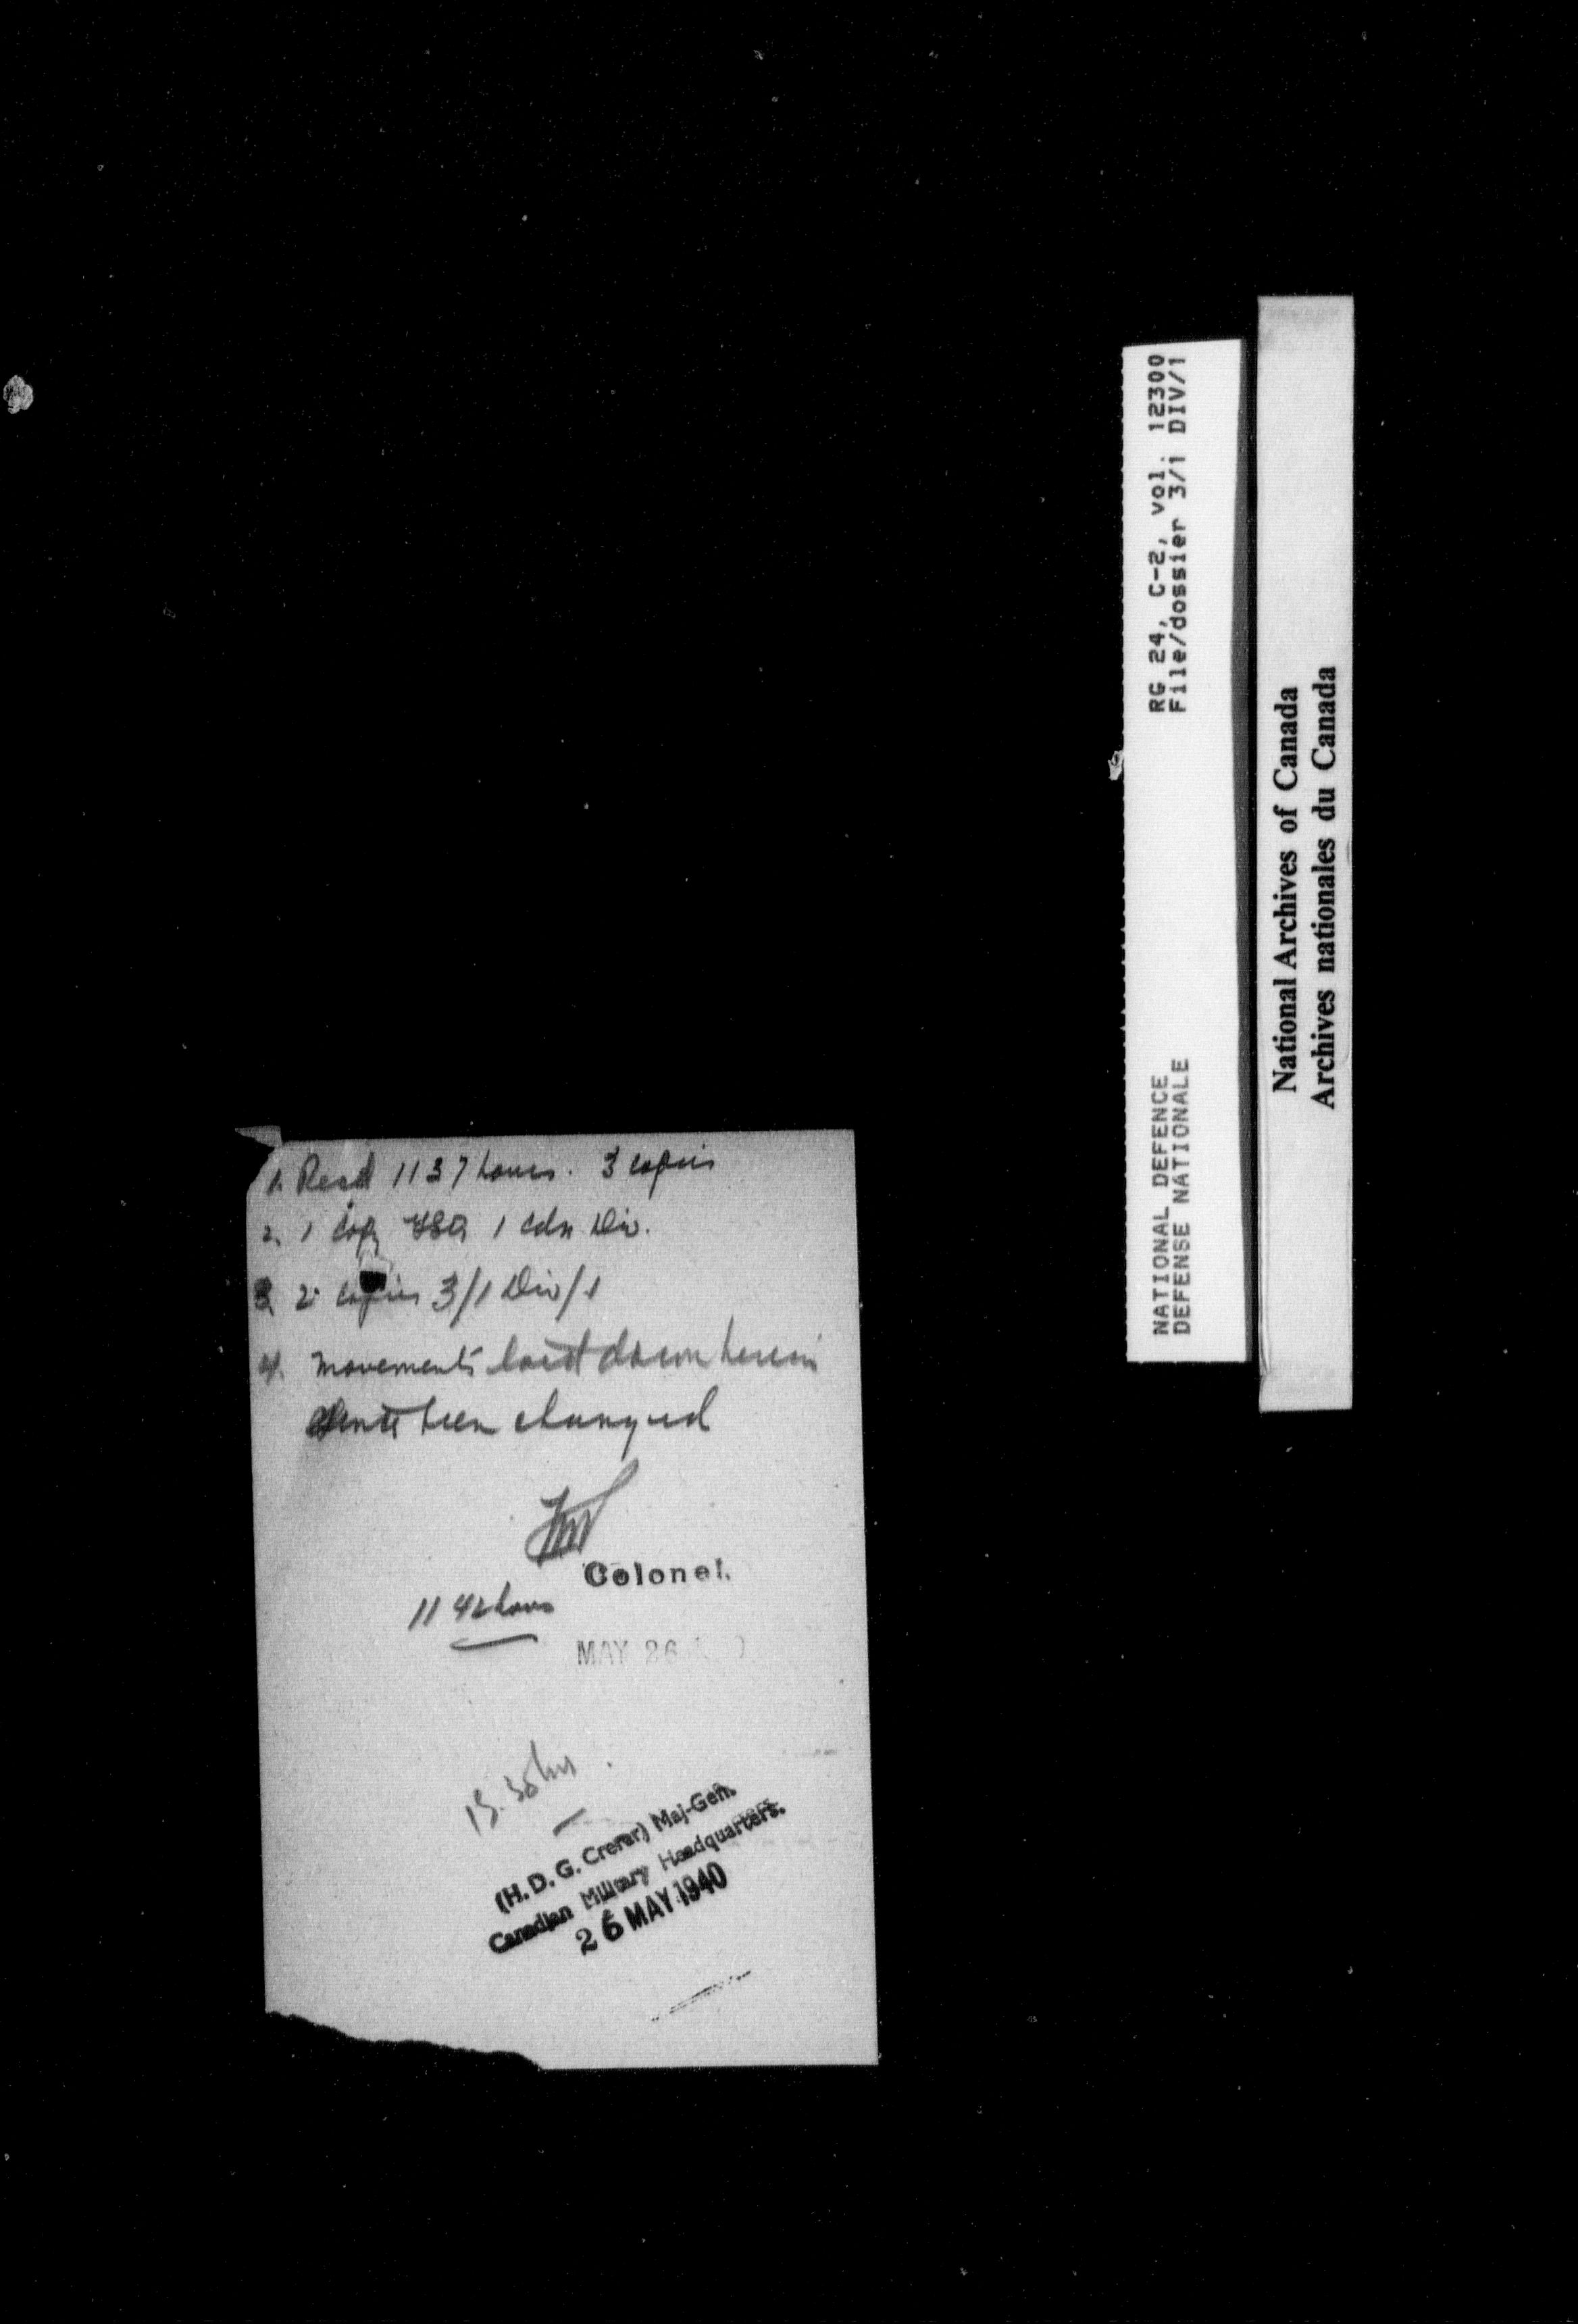 1. Recd 1137 hours. 3 copies
2. 1 copy 1 Cdn Div.
3. 2 copies 3/1 Div/1
4. Movements laid down herein
have been changed
Colonel.
1142 hours
MAY 26
15.30 hrs.
(H. D. G. Crerar) Maj-Gen.
Canadian Military Headquarters.
26 MAY 1940
RG 24, C-2, vol. 12300
File/dossier 3/1 DIV/1
NATIONAL DEFENCE
DEFENSE NATIONALE
National Archives of Canada
Archives nationales du Canada